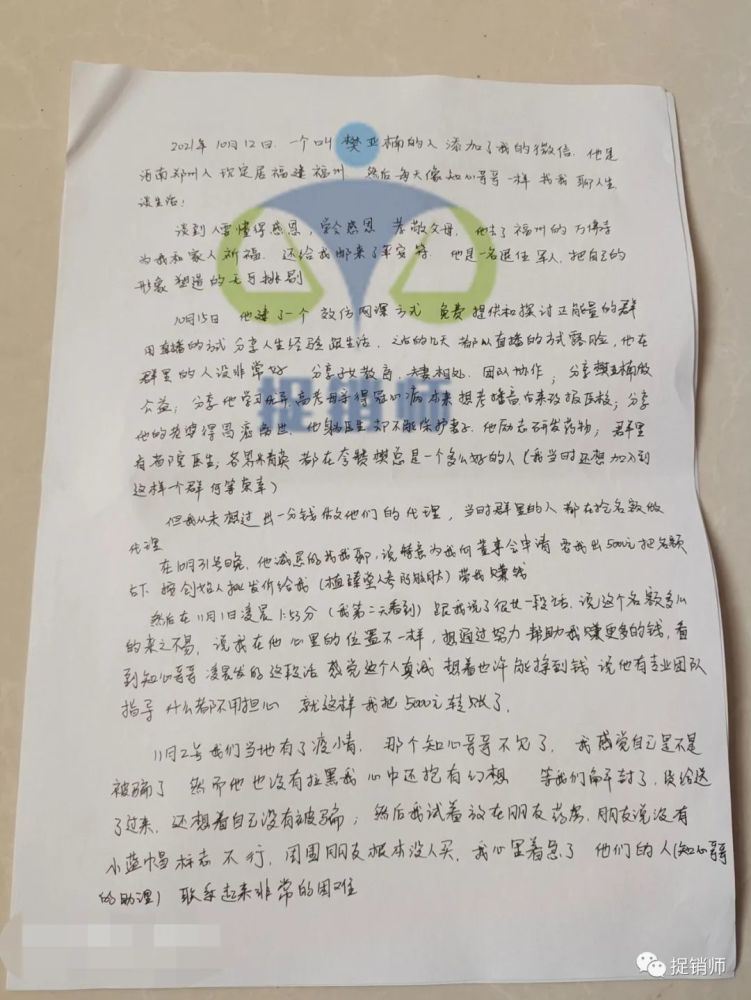 2021年10月12日. 一个叫 樊亚楠的人 添加了我的微信. 他是
河南郑州人 现定居福建福州 然后每天像知心哥哥一样 找我 聊人生
谈生活!
谈到人要懂得感恩, 学会感恩 孝敬父母. 他去了福州的万佛寺
为我和家人祈福. 还给我邮来了平安符 他是一名退伍军人. 把自己的
形象塑造的毛可挑剔
10月15日 他建了一个 微信网课方式 免费提供和探讨正能量的群
用直播的方式分享人生经验跟生活. 之后的几天 都以直播的方式露脸, 他在
群里的人设非常好 分享子女教育, 夫妻相处. 团队协作; 分享樊亚楠做
公益; 分享他学习优异 高考母亲得冠心病本来想考播音后来改报医校; 分享
他的老婆得胃癌离世. 他身为医生却不能保护妻子. 他励志研发药物; 群里
有各院医生; 各界精英 都在夸赞樊总是一个多么好的人 (我当时还想加入到
这样一个群何等荣幸)
但我从未想过出一分钱做他们的代理, 当时群里的人都在抢名额做
代理
在10月31号晚. 他减思的找我聊, 说特意为我向董事会申请 要我出5000元把名额
占下 按创始人批发价给我 (植臻堂人参 肽) 带我赚钱
然后在11月1日凌晨1:53分 (我第二天看到) 跟我说了很大一段话. 说这个名额多么
的来之不易, 说我在他心里的位置不一样, 想通过努力 帮助我赚更多的钱, 看
到知心哥哥 凌晨发的这段话 感觉这个人真诚 想着也许能挣到钱 说他有专业团队
指导 什么都不用担心 就这样我把5000元转账了.
11月2号我们当地有了疫情. 那个知心哥哥不见了. 我感觉自己是不是
被骗了 然而他也没有拉黑我 心中还抱有幻想 等我们解封了, 货给送
了过来. 还想着自己没有被骗; 然后我试着放在朋友药房. 朋友说没有
小蓝帽标志 不行, 周围朋友根本没人买. 我心里着急了 他们的人(知心哥哥
的助理) 联系起来非常的困难
捉销师
捉销师